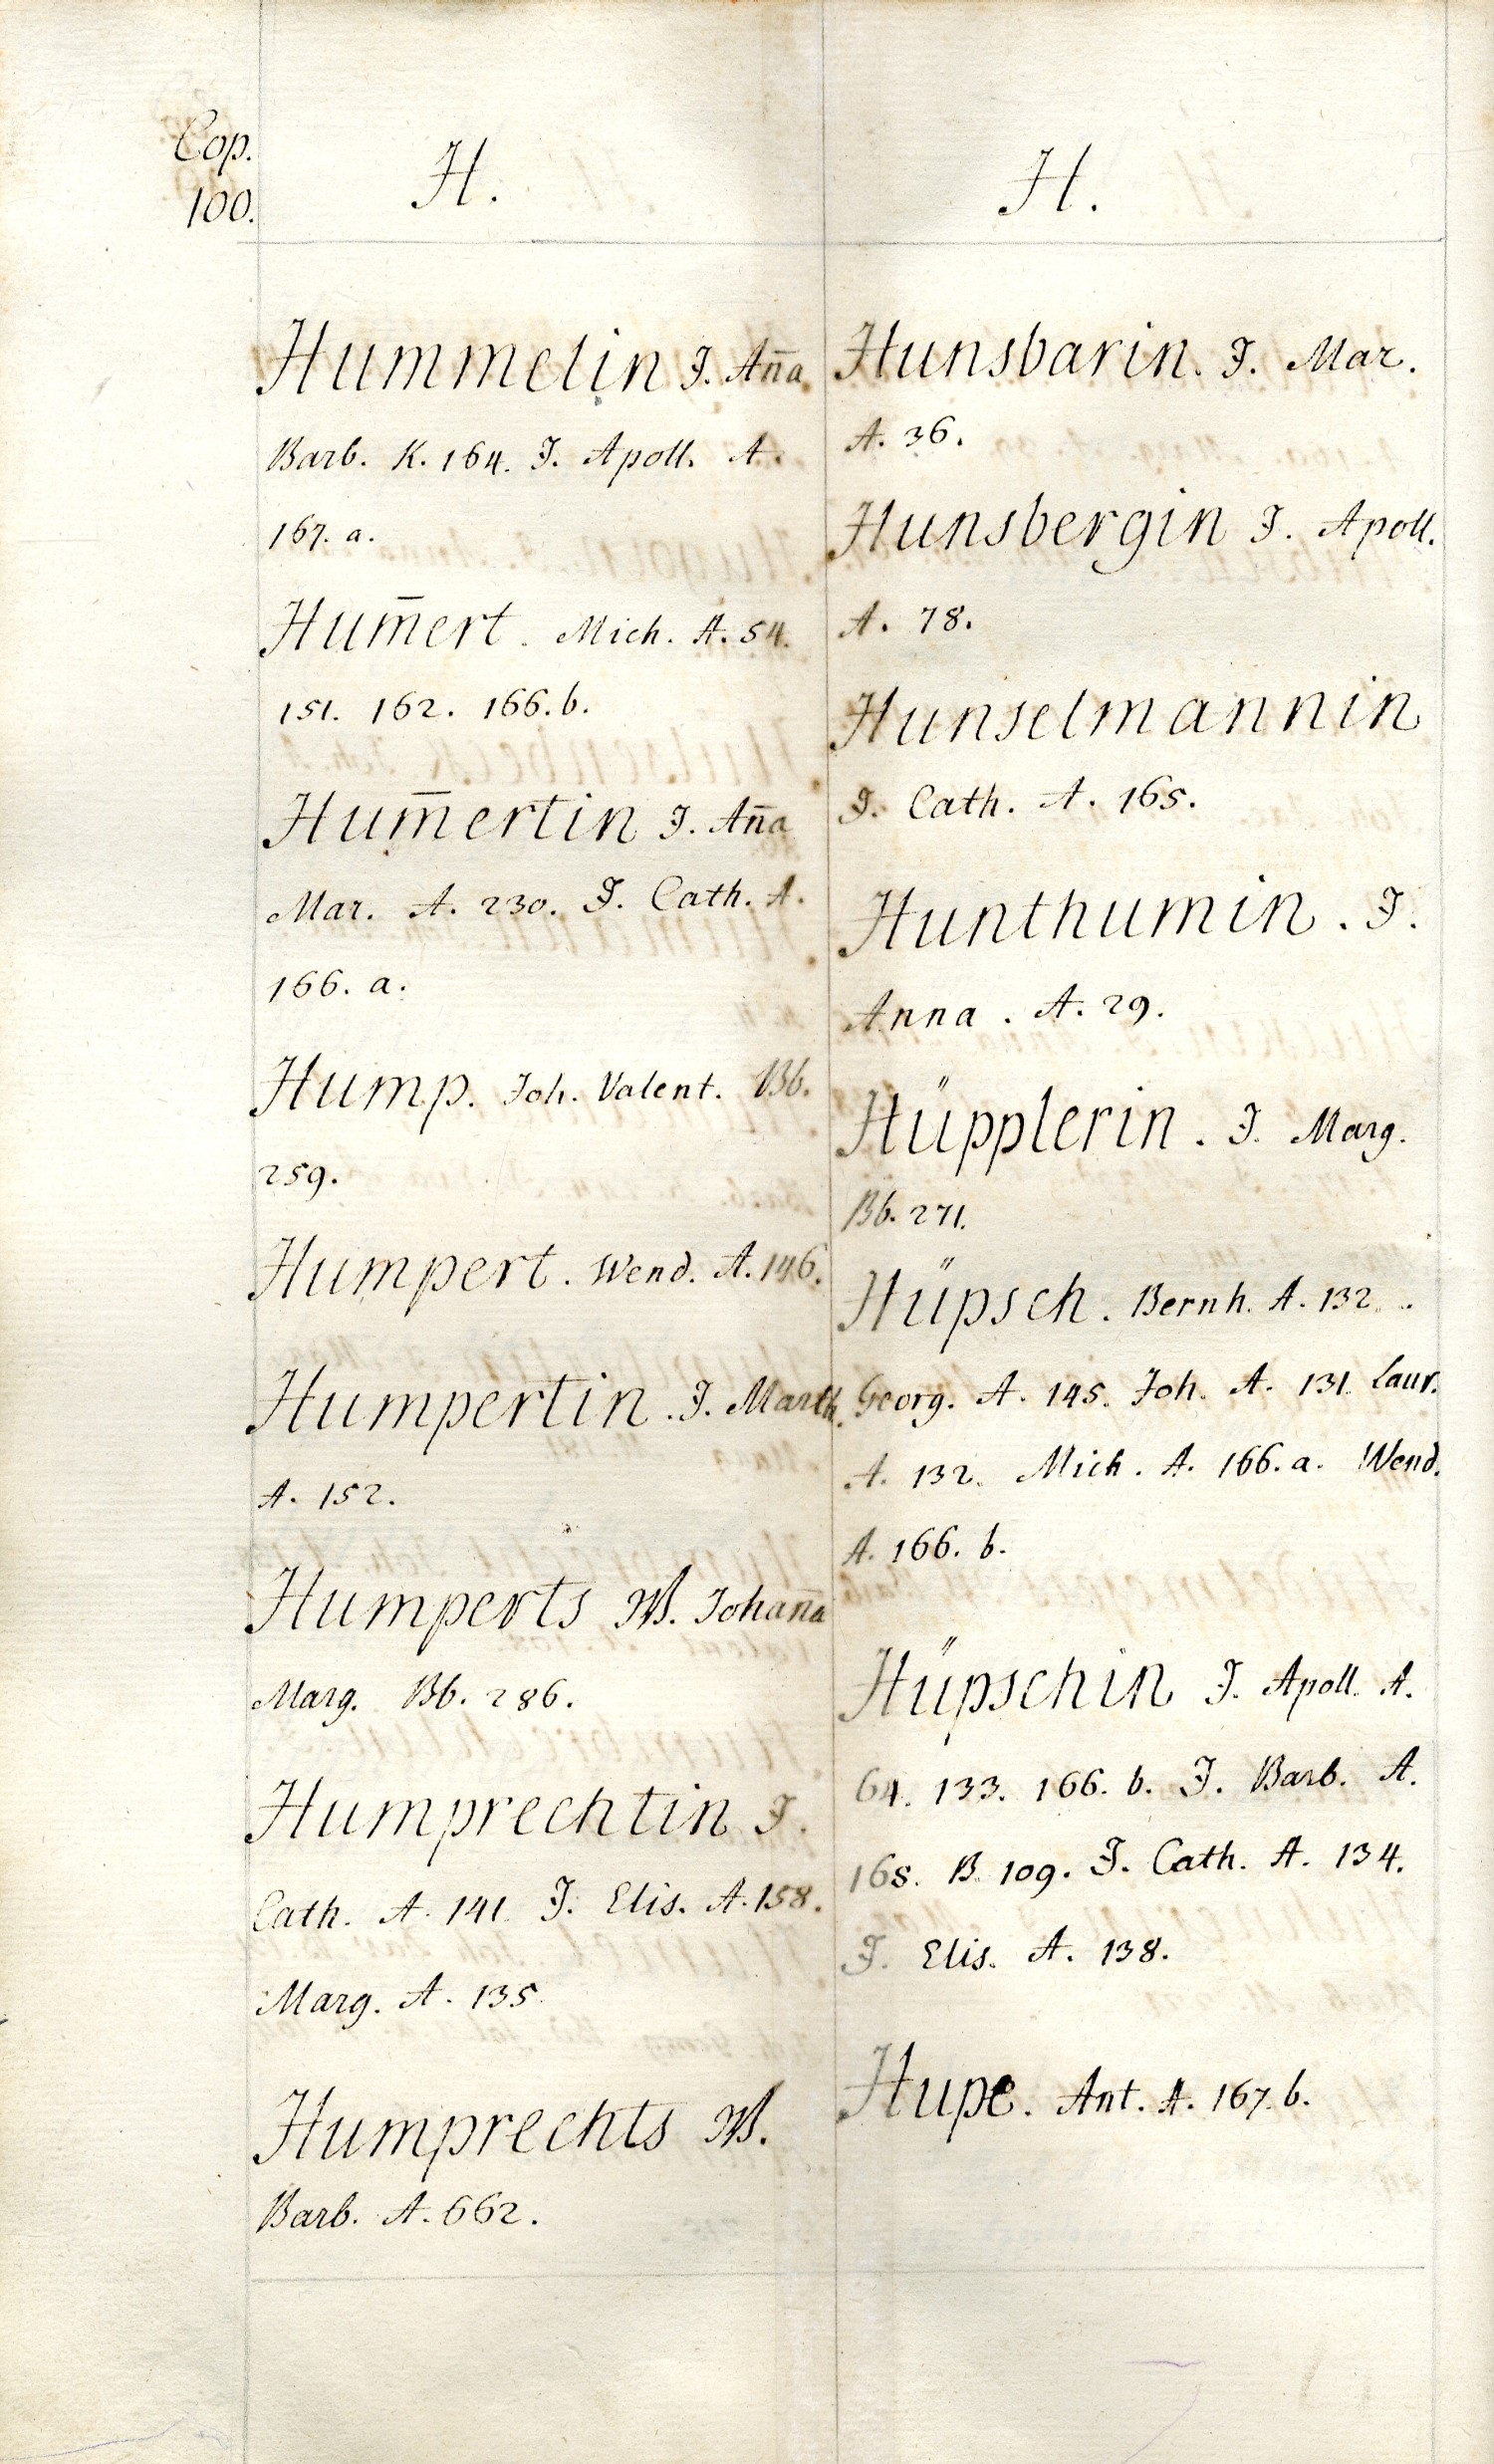 Cop.
100.
H.
Hummelin J. An̄a
Barb. K. 164. J. Apoll. A.
167. a.
Hum̄ert. Mich. A. 54.
151. 162. 166. b.
Hum̄ertin J. An̄a
Mar. A. 230. J. Cath. A.
166. a.
Hump. Joh. Valent. Bb.
259.
Humpert. Wend. A. 146.
Humpertin. J. Marth.
A. 152.
Humperts W. Johan̄a
Marg. Bb. 286.
Humprechtin J.
Cath. A. 141. J. Elis. A. 158.
Marg. A. 135.
Humprechts W.
Barb. A. 662.
H.
Hunsbarin. J. Mar.
A. 36.
Hunsbergin J. Apoll.
A. 78.
Hunselmannin
J. Cath. A. 165.
Hunthumin. J.
Anna. A. 29.
Hüpplerin. J. Marg.
Bb. 271.
Hüpsch. Bernh. A. 132.
Georg. A. 145. Joh. A. 131. Laur.
A. 132. Mich. A. 166. a. Wend.
A. 166. b.
Hüpschin J. Apoll. A.
64. 133. 166. b. J. Barb. A.
165. B. 109. J. Cath. A. 134.
J. Elis. A. 138.
Hupe. Ant. A. 167. b.